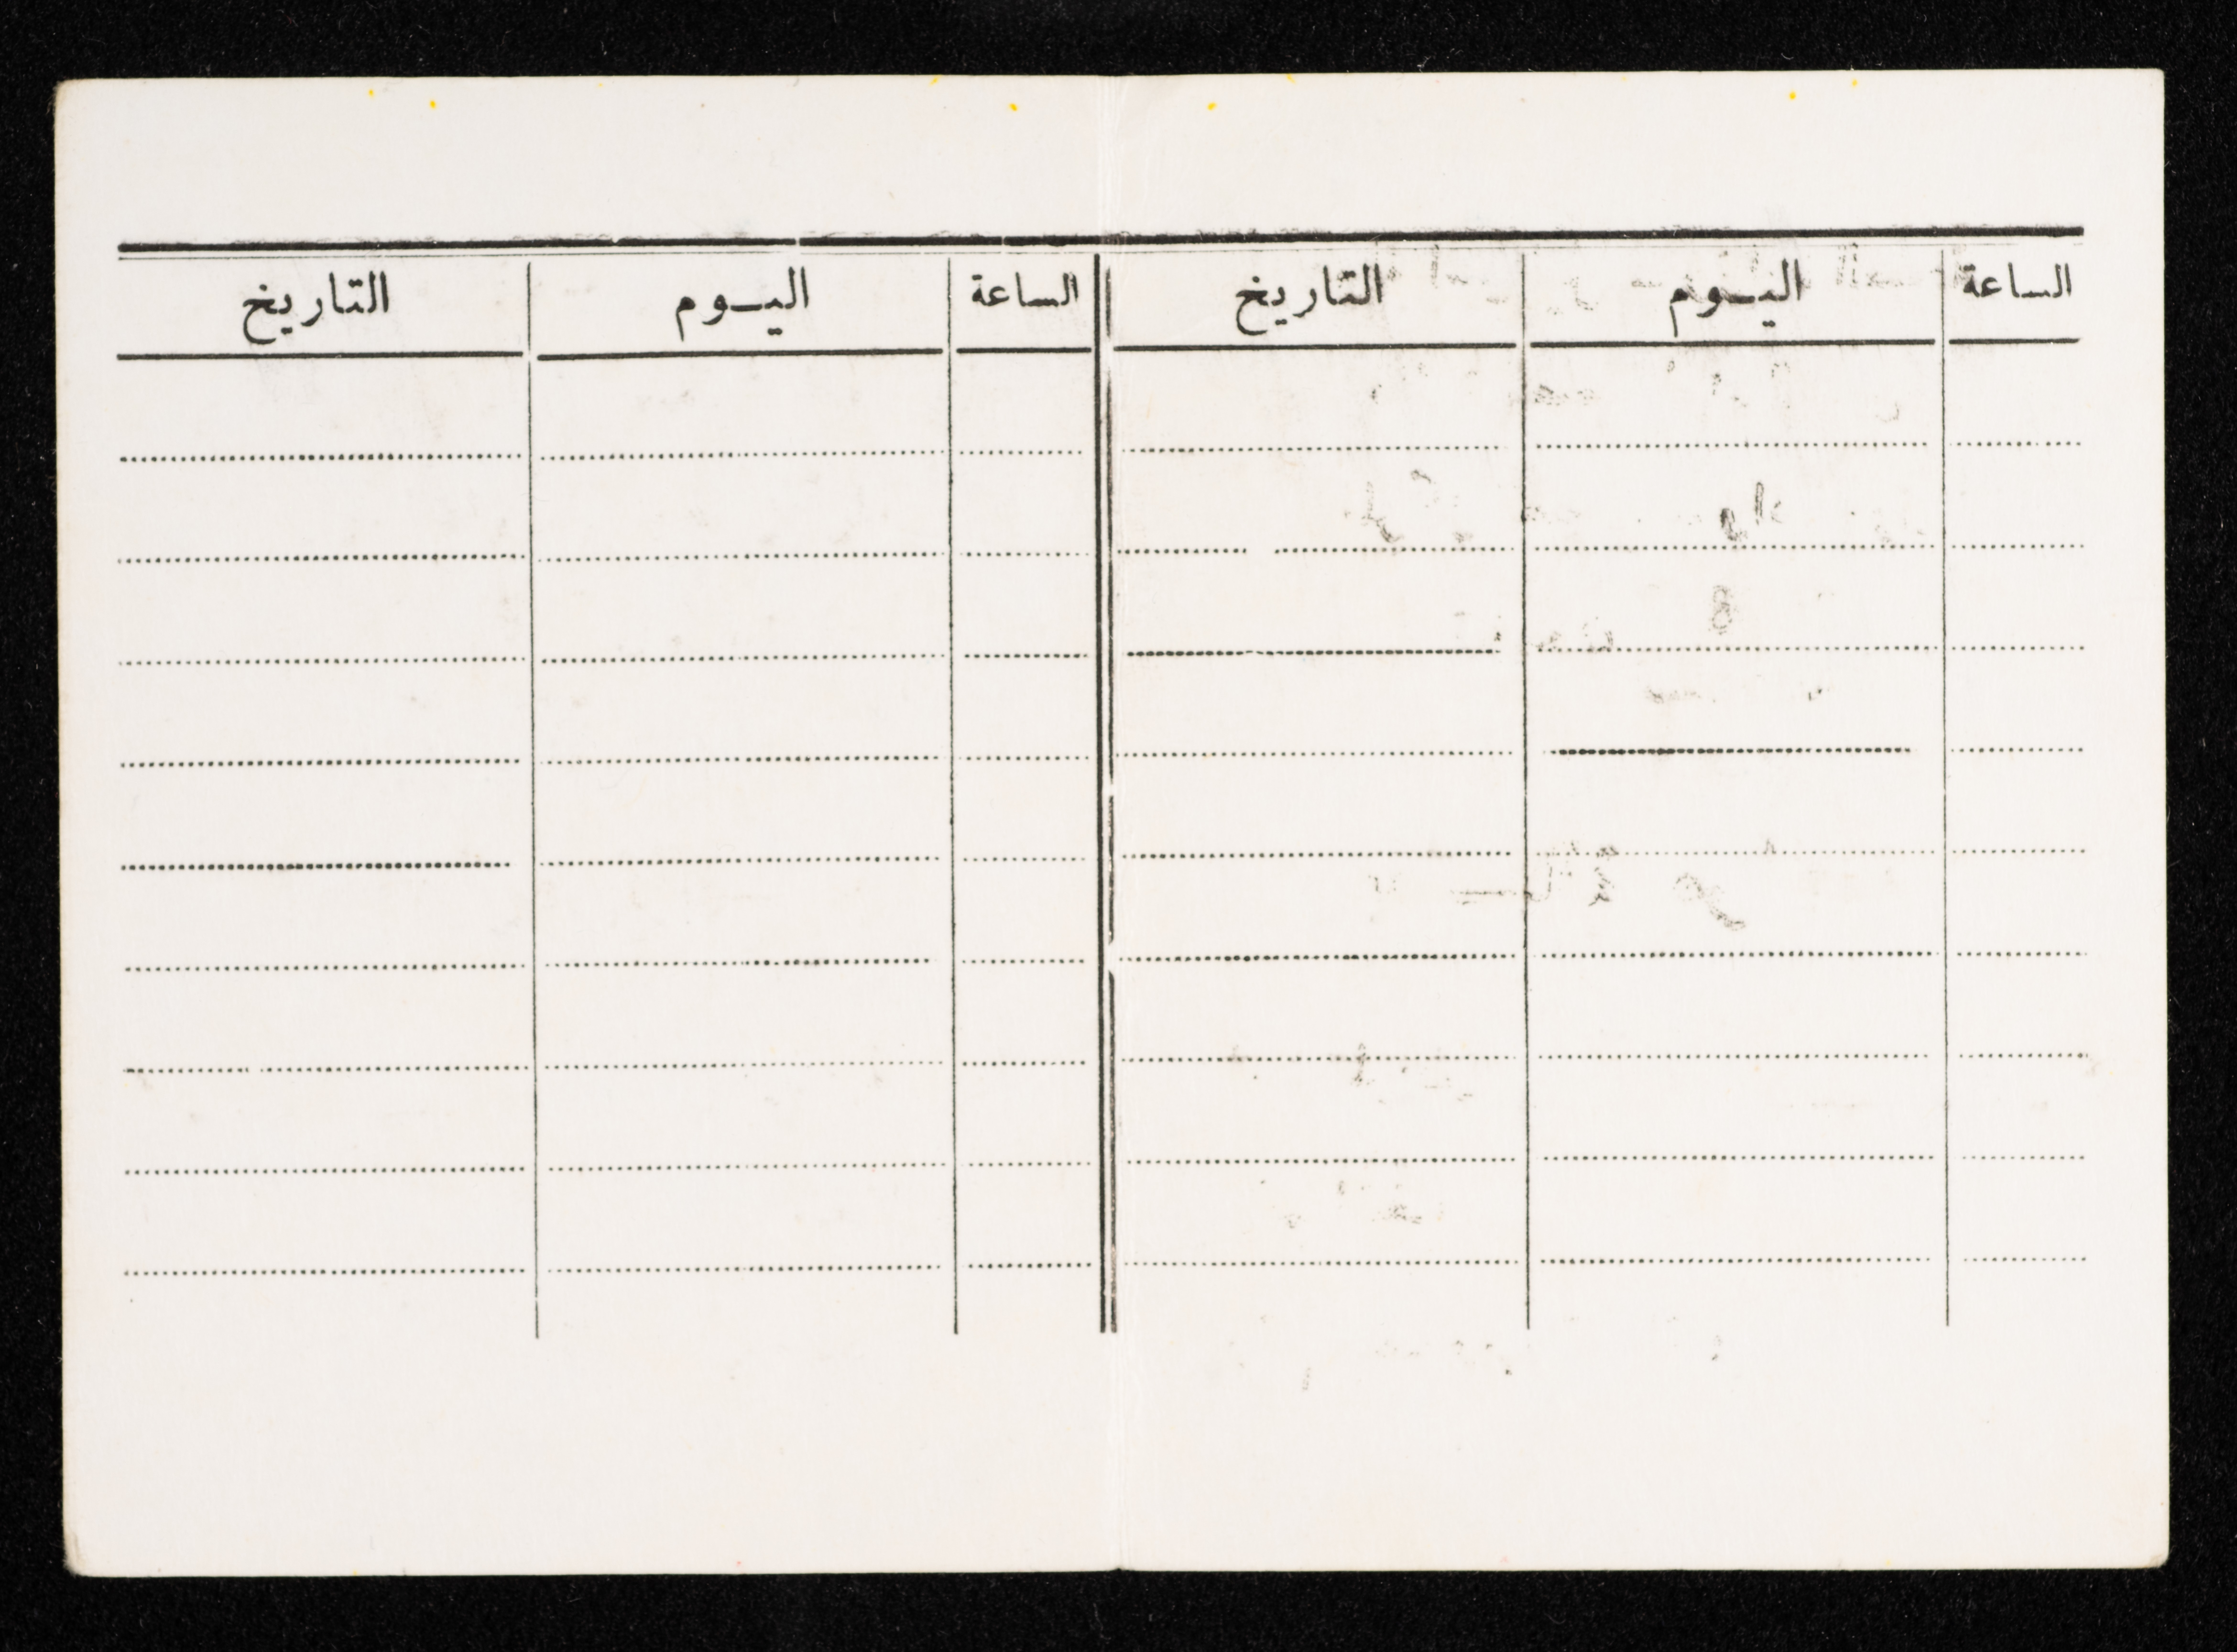 الساعة اليـوم التاريخ الساعة اليـوم التاريخ